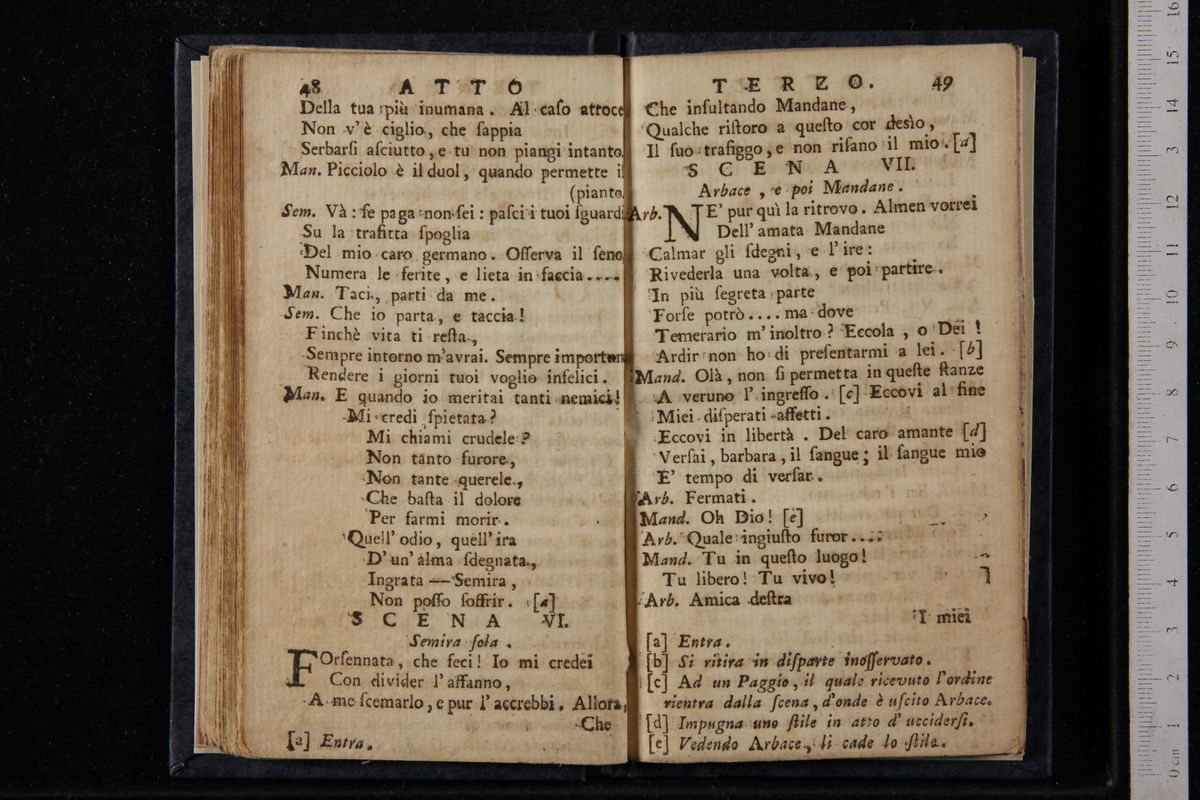 48 ATTO
Della tua più inumana. Al caſo atroce
Non v'è ciglio, che ſappia
Serbarſi aſciutto, e tu non piangi intanto.
Man. Picciolo è il duol, quando permette il
(pianto.
Sem. Và: ſe paga non ſei: paſci i tuoi ſguardi
Su la trafitta ſpoglia
Del mio caro germano. Oſſerva il ſeno,
Numera le ferite, e lieta in faccia....
Man. Taci, parti da me.
Sem. Che io parta, e taccia!
Finchè vita ti reſta,
Sempre intorno m'avrai. Sempre importuna
Rendere i giorni tuoi voglio infelici.
Man. E quando io meritai tanti nemici!
Mi credi ſpietata?
Mi chiami crudele?
Non tanto furore,
Non tante querele,
Che baſta il dolore
Per farmi morir.
Quell' odio, quell' ira
D'un' alma ſdegnata,
Ingrata — Semira,
Non poſſo ſoffrir. [a]
SCENA VI.
Semira ſola.
FOrſennata, che feci! Io mi credei
Con divider l'affanno,
A me ſcemarlo, e pur l'accrebbi. Allora,
Che
[a] Entra.
TERZO. 49
Che inſultando Mandane,
Qualche riſtoro a queſto cor desìo,
Il ſuo trafiggo, e non riſano il mio. [a]
SCENA VII.
Arbace, e poi Mandane.
Arb. NE' pur quì la ritrovo. Almen vorrei
Dell' amata Mandane
Calmar gli ſdegni, e l'ire:
Rivederla una volta, e poi partire.
In più ſegreta parte
Forſe potrò.... ma dove
Temerario m'inoltro? Eccola, o Dei!
Ardir non ho di preſentarmi a lei. [b]
Mand. Olà, non ſi permetta in queſte ſtanze
A veruno l' ingreſſo. [c] Eccovi al fine
Miei diſperati affetti.
Eccovi in libertà. Del caro amante [d]
Verſai, barbara, il ſangue; il ſangue mio
E' tempo di verſar.
Arb. Fermati.
Mand. Oh Dio! [e]
Arb. Quale ingiuſto furor....
Mand. Tu in queſto luogo!
Tu libero! Tu vivo!
Arb. Amica deſtra
I miei
[a] Entra.
[b] Si ritira in diſparte inoſſervato.
[c] Ad un Paggio, il quale ricevuto l'ordine
rientra dalla ſcena, d'onde è uſcito Arbace.
[d] Impugna uno ſtile in atto d' ucciderſi.
[e] Vedendo Arbace, li cade lo ſtile.